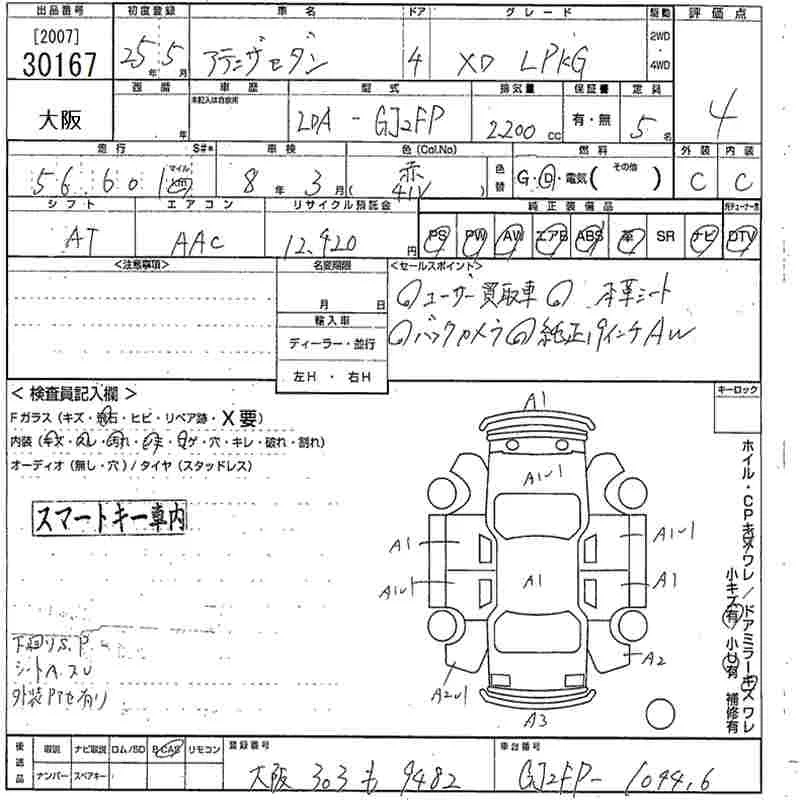 出品番号 初度登録 車名 ドア グレード 駆動 評価点
[2007]
30167 25年 5月 アテンザセダン 4 XD LPKG 2WD・4WD 4
大阪 西暦 年 車歴 未記入は自家用 型式 LDA-GJ2FP 排気量 2200cc 保証書 有・無 定員 5名
走行 S#* 車検 色(Col.No) 燃料 外装 内装
56,601 マイル km 8年 3月 赤 (41V) 色替 G・D・電気( その他 ) C C
シフト エアコン リサイクル預託金 純正装備品
AT AAC 12,920円 PS PW AW エアB ABS 革 SR ナビ DTV
<注意事項> 名変期限 <セールスポイント>
月 日 ユーザー買取車 本革シート
輸入車 バックカメラ 純正19インチAW
ディーラー・並行
左H・右H
<検査員記入欄> キーロック
Fガラス(キズ・飛石・ヒビ・リペア跡・X要)
内装(キズ・スレ・汚れ・コゲ・穴・キレ・破れ・割れ)
オーディオ(無し・穴)/タイヤ(スタッドレス)
スマートキー車内
下廻りS.P
シートA.スレ
外装PTセ有り
A1
A1~1
A1 A1~1
A1~1 A1 A1
A2~1 A2
A3
ホイル・CPキズワレ/ドアミラーキズワレ
小キズ有 小凹有 補修有
後送品 取説 ナビ取説 ロム/SD B-CAS リモコン 登録番号 車台番号
ナンバー スペアキー 大阪 303 も 9482 GJ2FP-